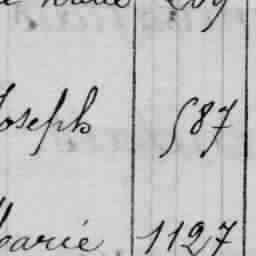 Joseph 587
Marie 1127